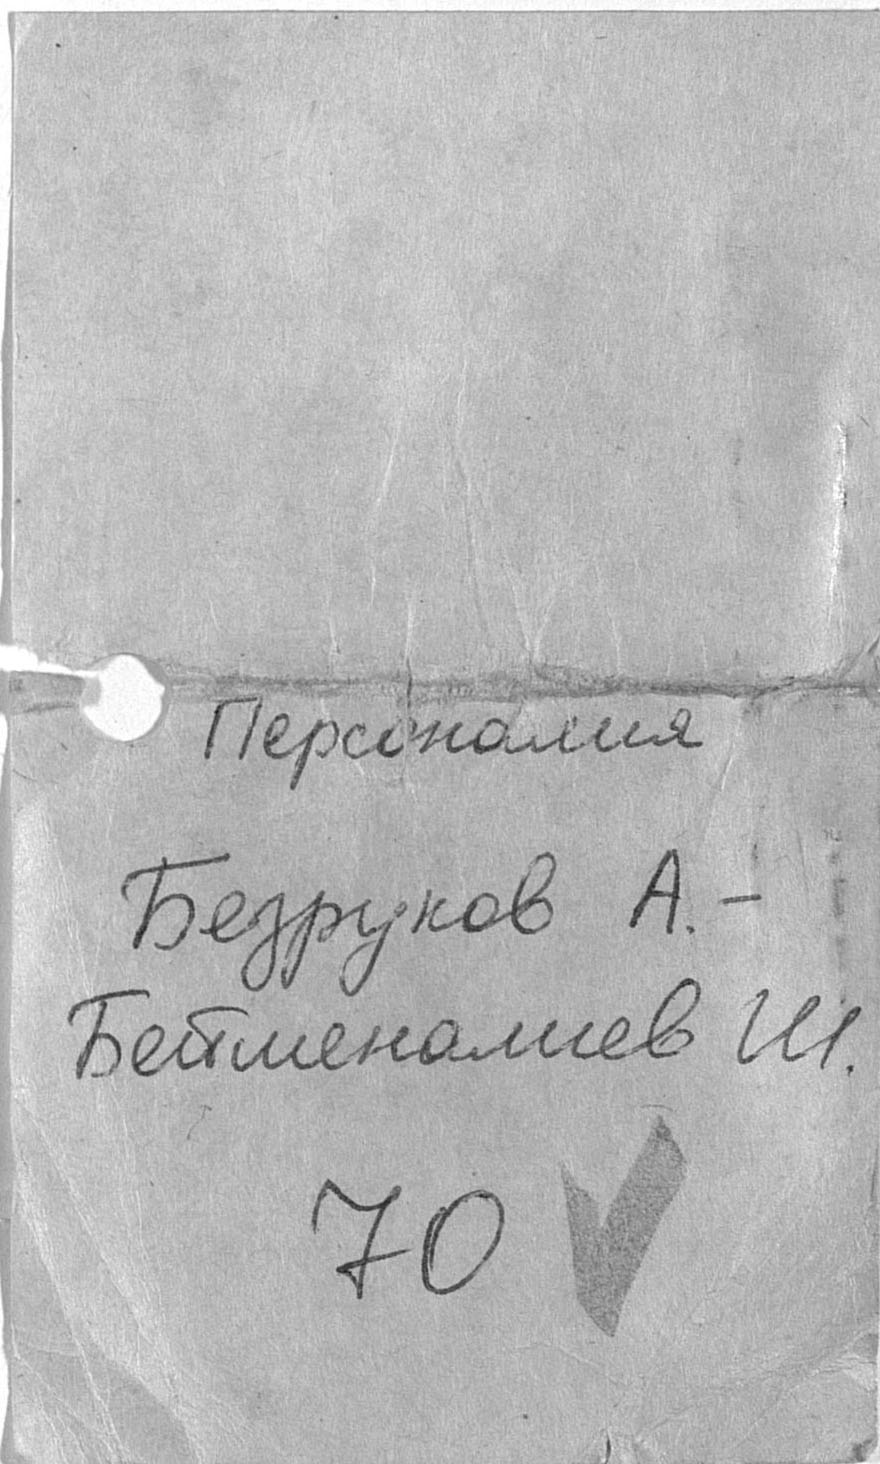 Персоналия
Безруков А. -
Бейшеналиев Ш.
70